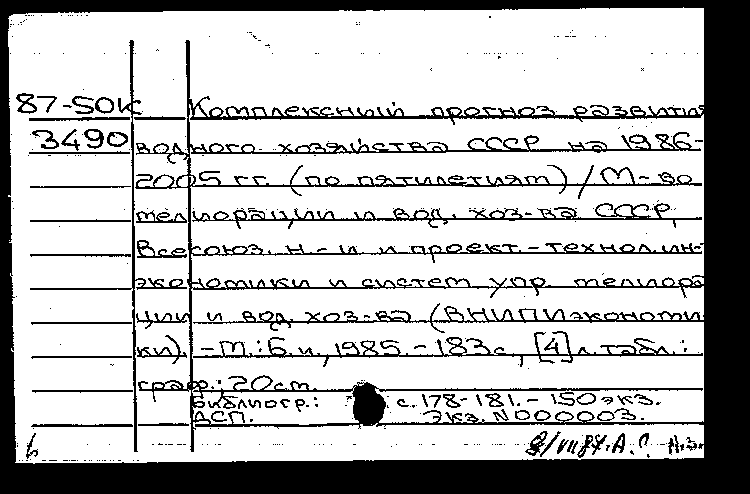 87-50К Комплексный прогноз развития
3490 водного хозяйства СССР на 1986-
2005 гг. (по пятилетиям) / М-во
мелиорации и вод. хоз-ва СССР,
Всесоюз. н.-и и проект.-технол. ин-
экономики и систем упр. мелиора
ции и вод. хоз-ва (ВНИПИэкономи
ки). -М.: Б. и., 1985. - 183 с., [4] л. табл.:
граф.; 20 см.
Библиогр.: с. 178-181. - 150 экз.
ДСП. Экз. N 000003.